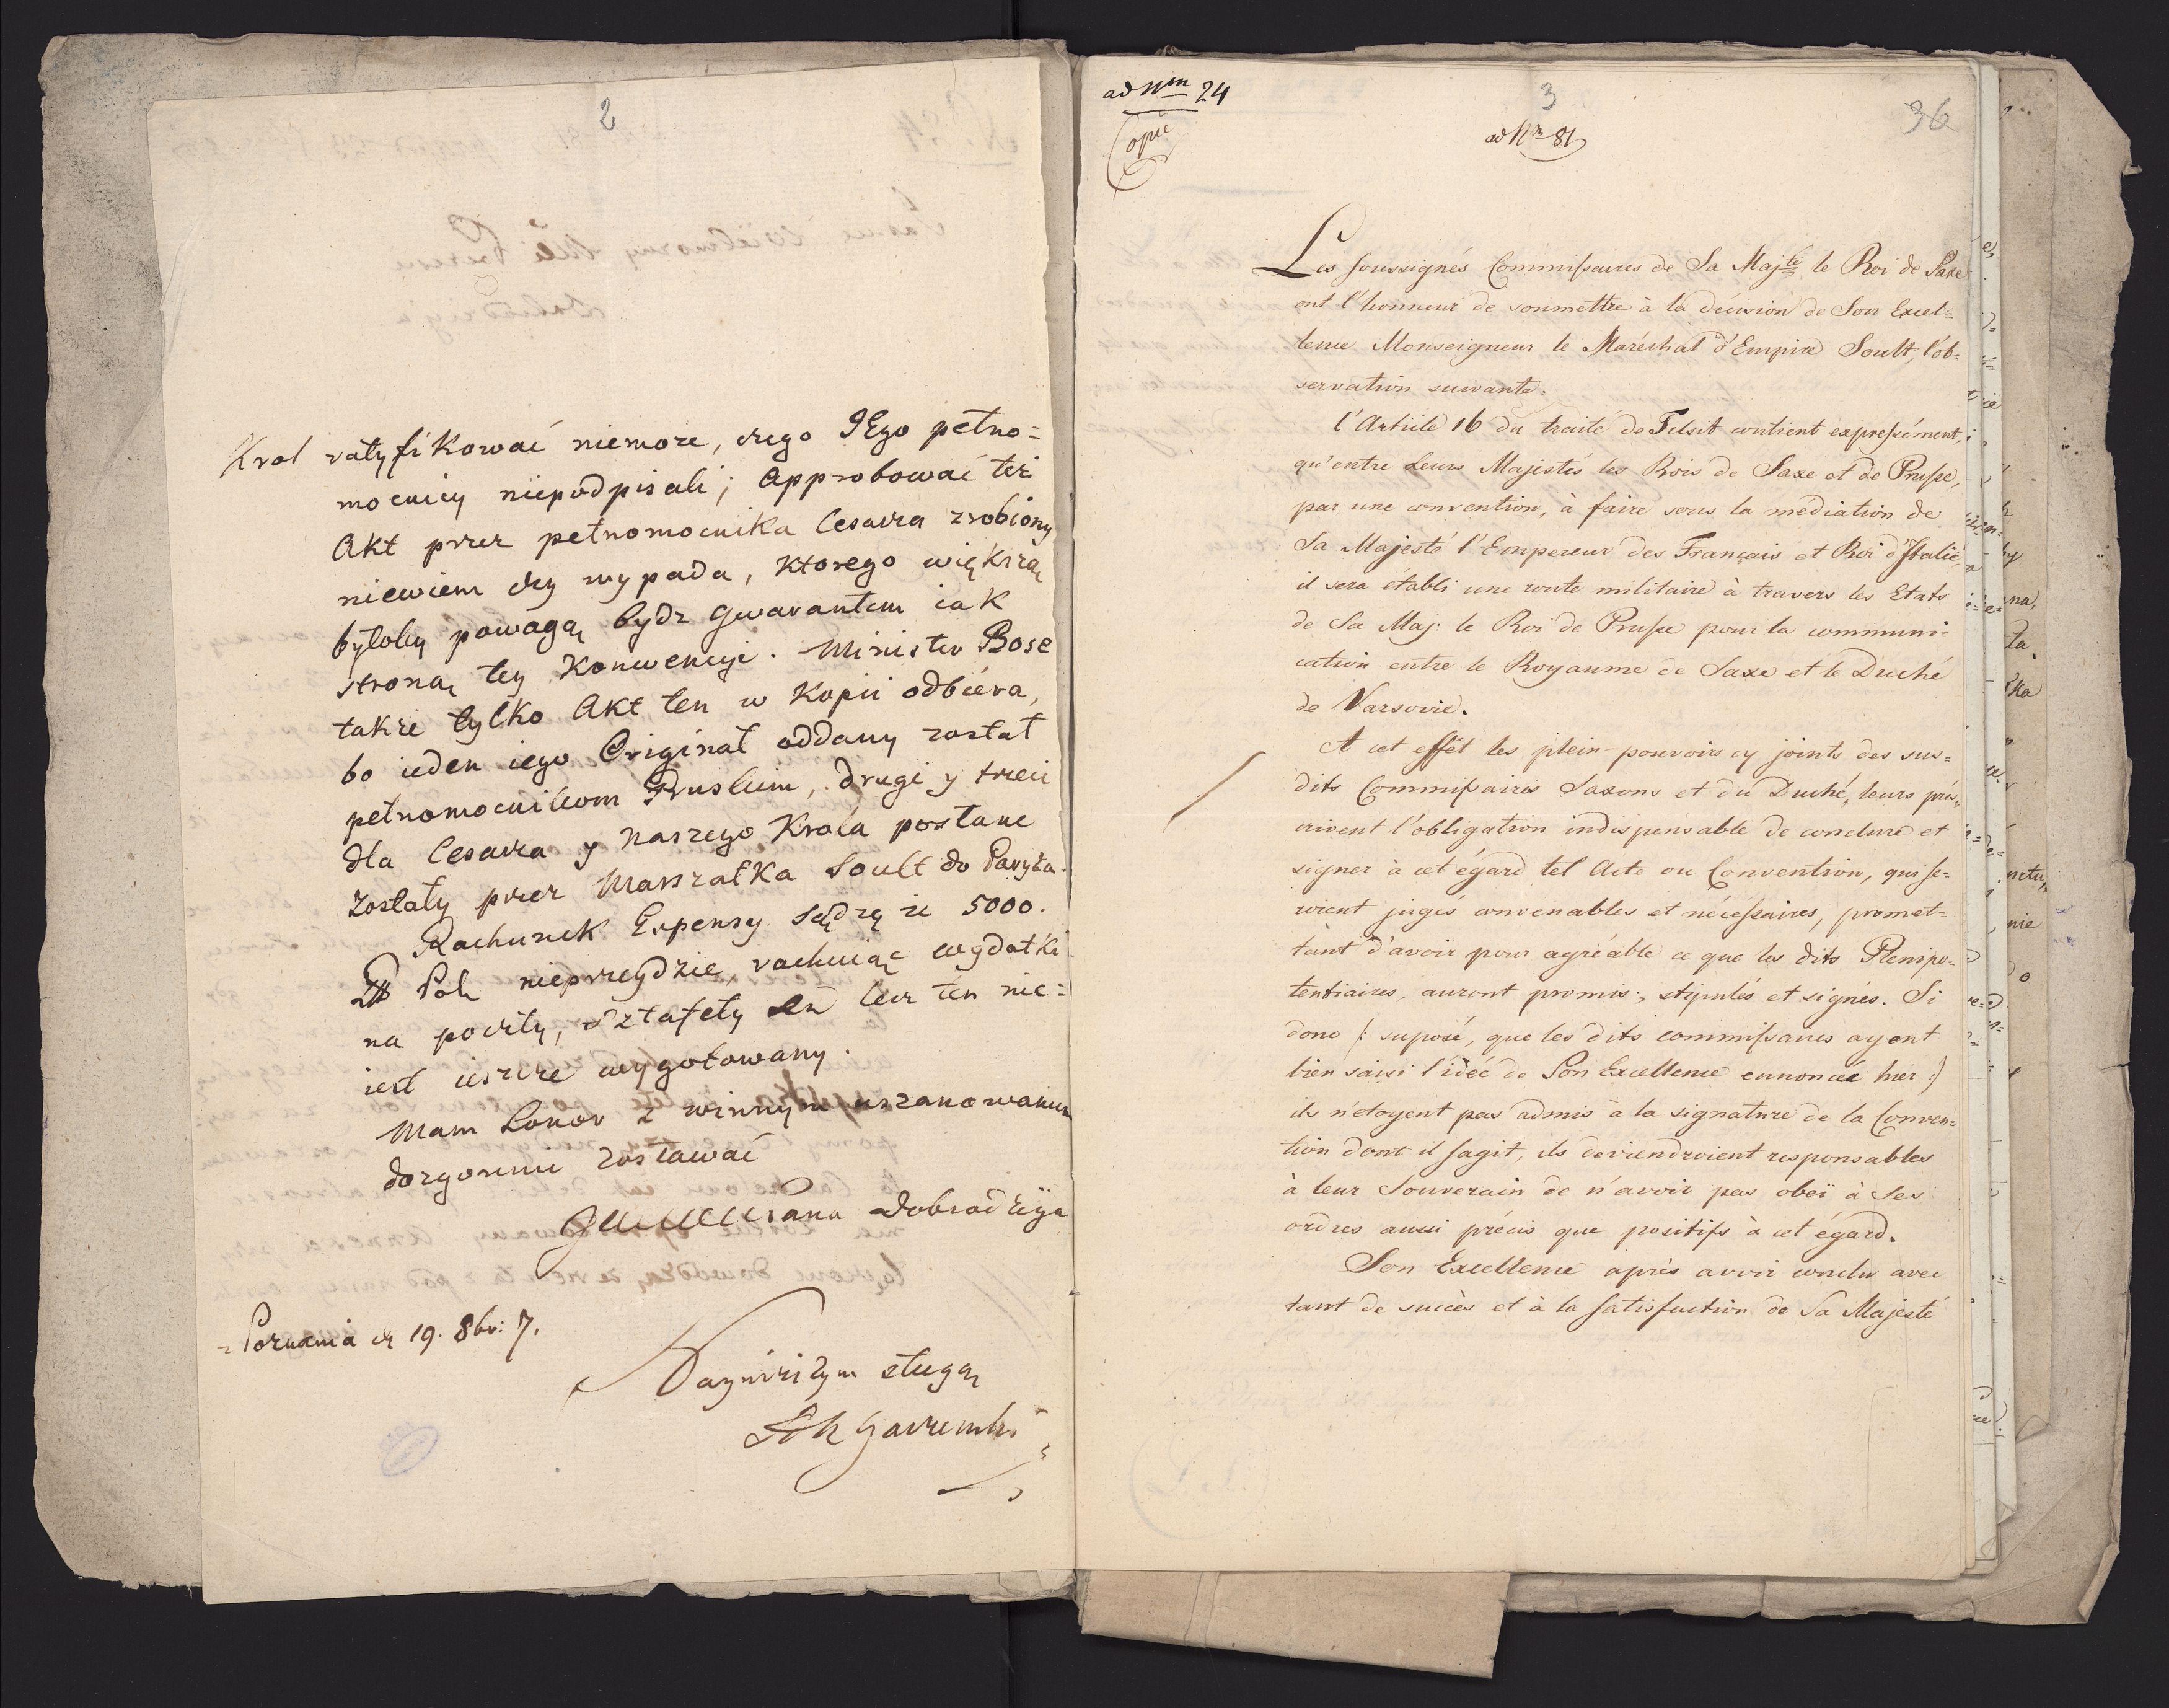 2
Krol ratyfikować niemoże, czego JEgo pełno=
mocnicy niepodpisali; Approbować też
Akt przez pełnomocnika Cesarza zrobiony
niewiem czy wypada, ktorego większą
byłoby powagą bydz gwarantem iak
stroną tey Konwencyi. Minister Bose
także tylko Akt ten w Kopii odbiéra,
bo ieden iego Originał oddany został
pełnomocnikom Pruskim, drugi y trzeci
dla Cesarza y Naszego Krola posłane
zostały przez Marszałka Soult do Paryża.
Rachunek Expensy sądzę że 5000.
Pol. nieprzeydzie, rachuiąc wydatki
na poczty, sztafety lecz ten nie=
iest ieszcze wygotowany.
Mam honor z winnym uszanowaniem
dozgonnie zostawać
Pana Dobrodzieja
Poznania d. 19. 8br: 7.
Nayniższym sługą
ad Nm 24
Copie
3
ad Nm 81
36
Les soussignés Commissaires de Sa Majté le Roi de Saxe
ont l'honneur de soumettre à la décision de Son Excel=
lence Monseigneur le Maréchal d'Empire Soult, l'ob=
servation suivante:
l'Article 16 du traité de Tilsit contient expressément,
qu'entre Leurs Majestés les Rois de Saxe et de Prusse,
par une convention, à faire sous la médiation de
Sa Majesté l'Empereur des Français et Roi d'Italie,
il sera établi une route militaire à travers les Etats
de Sa Maj: le Roi de Prusse pour la communi=
cation entre le Royaume de Saxe et le Duché
de Varsovie.
A cet effet les plein-pouvoirs cy joints des sus=
dits Commissaires Saxons et du Duché, leurs prés=
crivent l'obligation indispensable de conclure et
signer à cet égard tel Acte ou Convention, qui se=
roient jugés convenables et nécessaires, promet=
tant d'avoir pour agréable ce que les dits Plenipo=
tentiaires, auront promis, stipulés et signés. Si
donc /: suposé, que les dits commissaires ayent
bien saisi l'idée de Son Excellence ennoncée hier :/
ils n'etoyent pas admis à la signature de la Conven=
tion dont il sagit, ils deviendroient responsables
à leur Souverain de n'avoir pas obeï à Ses
ordres aussi précis que positifs à cet égard.
Son Excellence après avoir conclu avec
tant de succès et à la satisfaction de Sa Majesté